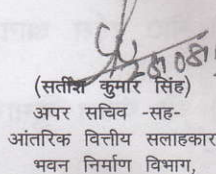 (सतीश कुमार सिंह)
अपर सचिव -सह-
आंतरिक वित्तीय सलाहकार
भवन निर्माण विभाग,